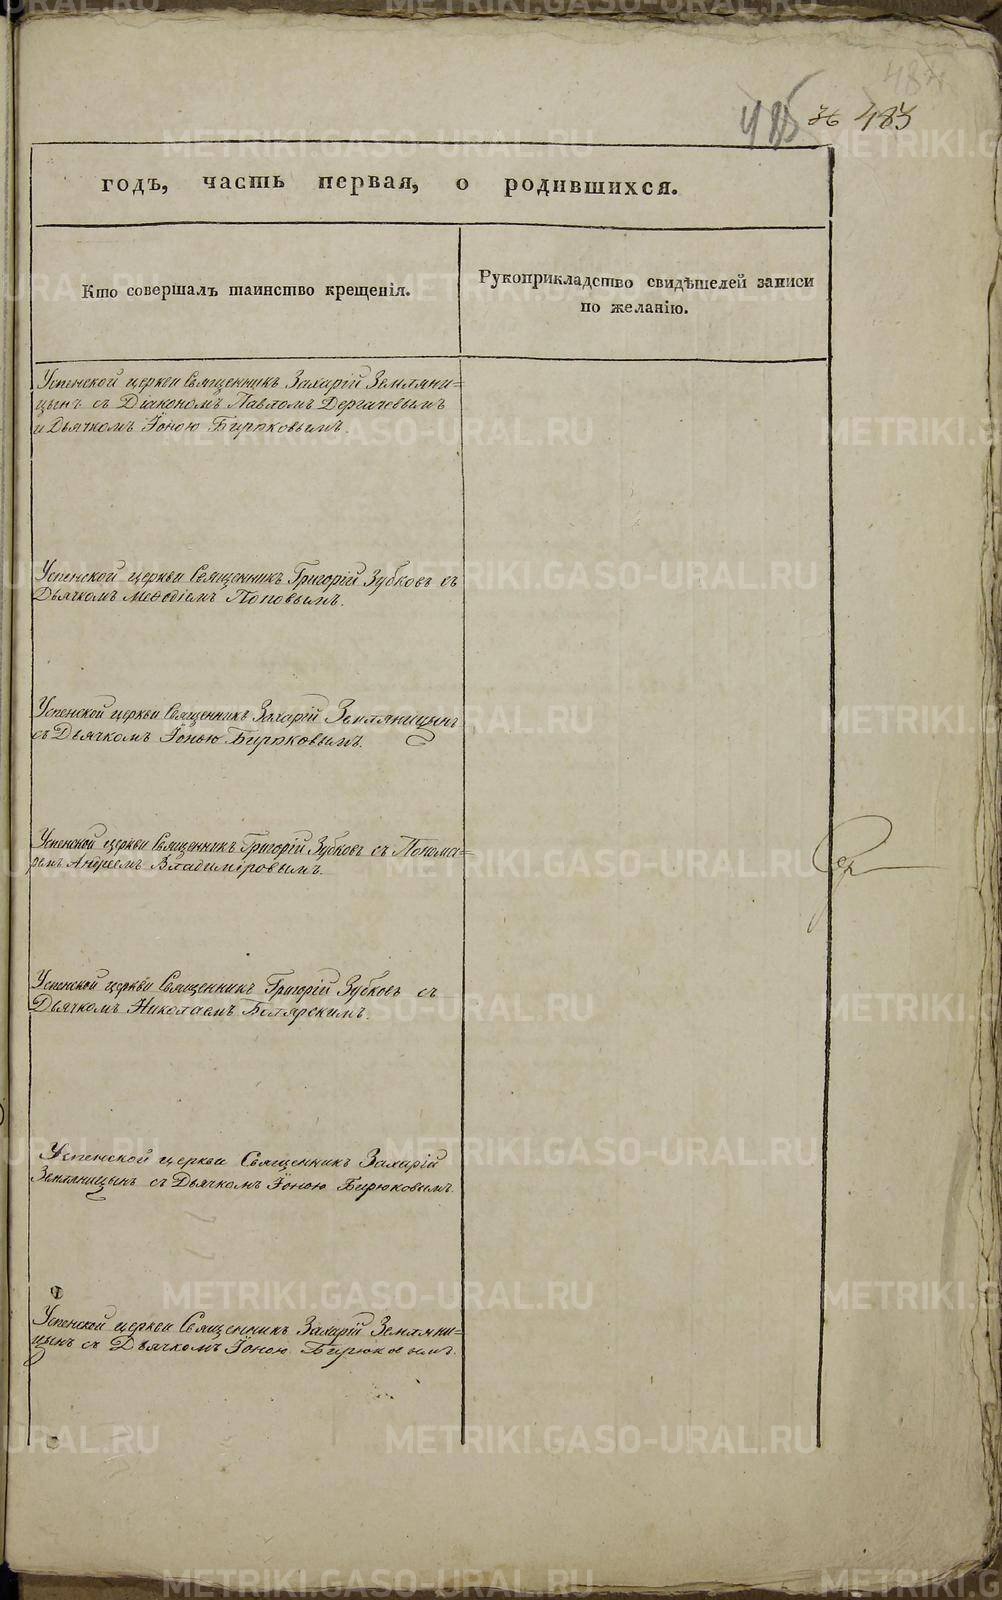 485 36 483
годъ, часть первая, о родившихся.
Кто совершалъ таинство крещенія.
Рукоприкладство свидѣтелей записи
по желанію.
Успенской церкви Священникъ Захарій Земляни=
цынъ съ Діакономъ Павломъ Дергачевымъ
и Дьячкомъ Іоною Бирюковымъ.
Успенской церкви Священникъ Григорій Зубковъ съ
Дьячкомъ Меѳодіемъ Поповымъ.
Успенской церкви Священникъ Захарій Земляницынъ
съ Дьячкомъ Іоною Бирюковымъ.
Успенской церкви Священникъ Григорій Зубковъ съ Понома=
ремъ Андреемъ Владиміровымъ.
Успенской церкви Священникъ Григорій Зубковъ съ
Дьячкомъ Николаемъ Боярскимъ.
Успенской церкви Священникъ Захарій
Земляницынъ съ Дьячкомъ Іоною Бирюковымъ.
Успенской церкви Священникъ Захарій Земляни=
цынъ съ Дьячкомъ Іоною Бирюковымъ.
METRIKI.GASO-URAL.RU